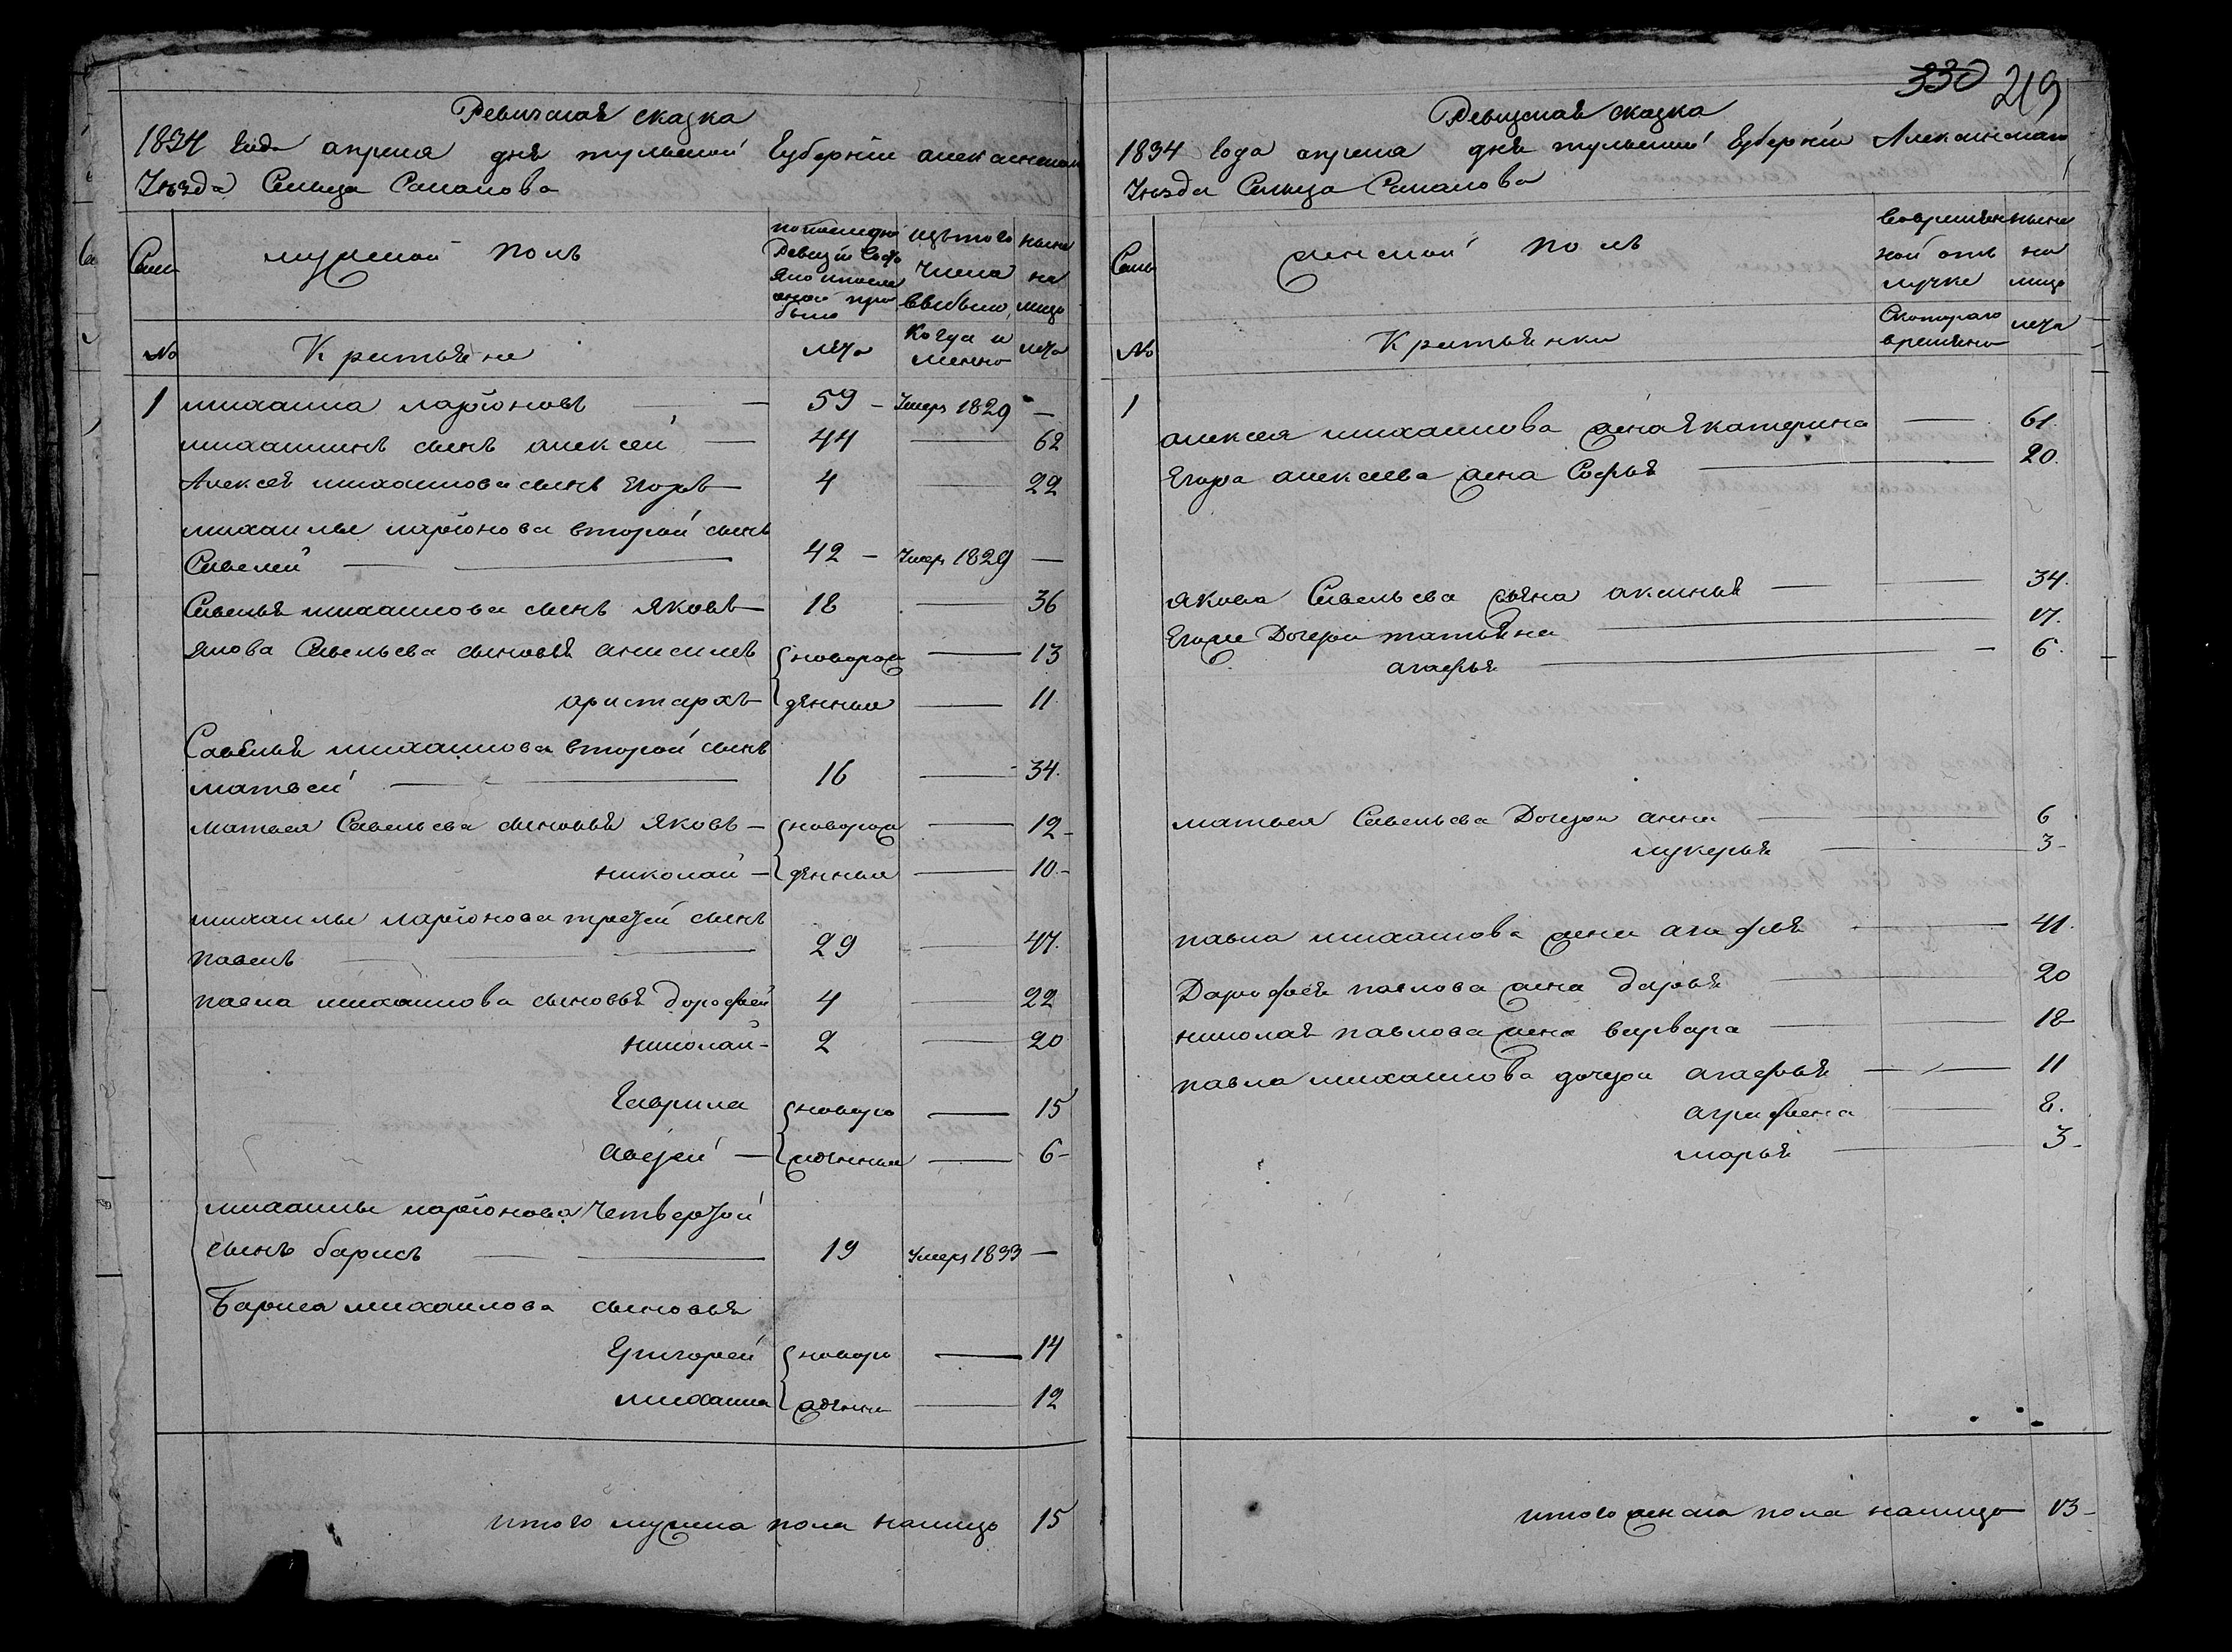 Ревизская сказка
1834 Года апреля дня тульской Губернии алексинскаго
Уезда Сельца Саланова
Семьи
мужской полъ
по последней Ревизии состояло и после оной прибыло
изъ того числа выбыло
ныне на лицо
№
Крестьяне
лета
Когда именно
лета
1 михаила ларiоновъ — 59 — Умеръ 1829 —
михаилинъ сынъ алексей — 44 — 62
Алексея михаилова сынъ Егоръ — 4 — 22
михаилы ларiонова второй сынъ
Савелий — 42 — Умеръ 1829 —
Савелья михаилова сынъ яковъ — 18 — 36
якова Савельева сыновья анисимъ новорож — 13
аристархъ денныя — 11
Савелья михаилова второй сынъ
матвей — 16 — 34.
матвея Савельева сыновья яковъ — новорож — 12 -
николай — денныя — 10 -
михаилы ларiонова третей сынъ
павелъ — 29 — 47.
павла михаилова сыновья дорофей 4 — 22
николай - 2 — 20
Гаврила новоро — 15
авдей — жденныя — 6 -
михаилы ларiонова четвертой
сынъ барисъ — 19 Умеръ 1833 —
Бариса михаилова сыновья
Григорей новоро — 14
михаила жденны — 12
итого мужска пола налицо 15
330 219
Ревизская сказка
1834 Года апреля дня тульской Губернии Алексинскаго
Уезда Сельца Саланова
Семьи
женской полъ
Во временной отлучке
ныне на лицо
№
Крестьянки
Скотораго времени
лета
1
алексея михаилова жена Екатерина — 61.
Егора алексеева жена Софья — 20.
якова Савельева жена аксинья — 34.
Егоже Дочери татьяна — 17.
агафья — 6.
матвея Савельева Дочери анна — 6
лукерья — 3 -
павла михаилова жена агафья — 41.
Дарофея павлова жена дарья — 20
николая павлова жена варвара — 18
павла михаилова дочери агафья — 11
аграфена — 8.
марья — 3 -
итого женска пола налицо 13 -